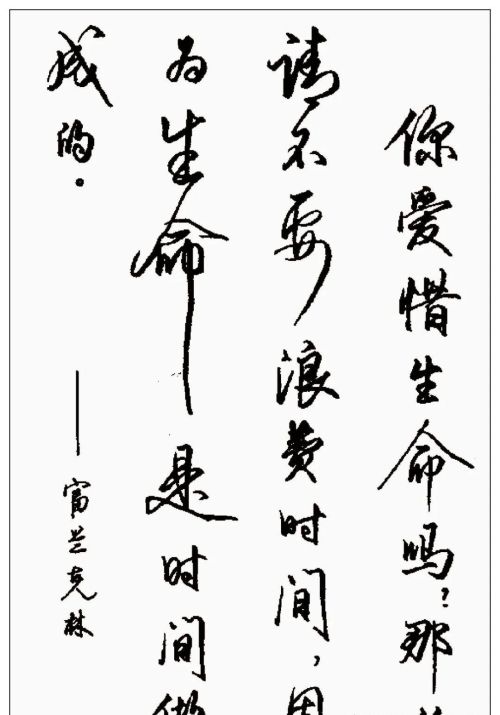 你爱惜生命吗？那
请不要浪费时间，因
为生命是时间做
成的。
——富兰克林